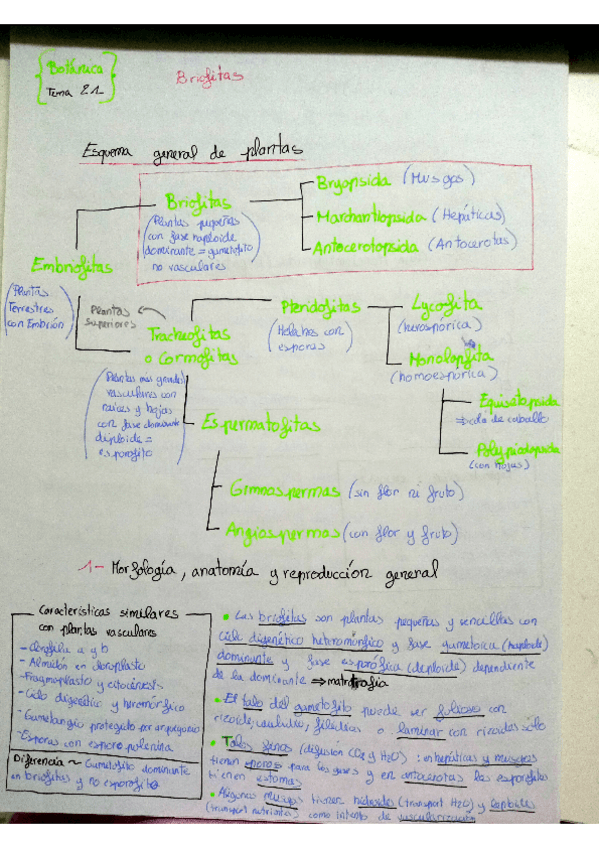 Botánica
Tema 2.1
Briofitas
Esquema general de plantas
Briofitas
(Plantas pequeñas
con fase haploide
dominante = gametofito
no vasculares)
Bryopsida (Musgos)
Marchantiopsida (Hepáticas)
Antocerotopsida (Antocerotas)
Embriofitas
(Plantas
Terrestres
con Embrión)
Plantas
superiores
Traqueofitas
o Cormofitas
(Plantas más grandes
vasculares con
raíces y hojas
con fase dominante
diploide =
esporofito)
Pteridofitas
(Helechos con
esporas)
Lycofita
(heterospórica)
Monilofita
(homoespórica)
Equisetopsida
⇒ cola de caballo
Polypodiopsida
(con hojas)
Espermatofitas
Gimnospermas (sin flor ni fruto)
Angiospermas (con flor y fruto)
1- Morfología, anatomía y reproducción general
Características similares
con plantas vasculares
- Clorofila a y b
- Almidón en cloroplasto
- Fragmoplasto y citocinesis
- Ciclo digenético y heteromórfico
- Gametangio protegido por arquegonio
- Esporas con esporopolenina
Diferencia ~ Gametofito dominante
en briofitas y no esporofito
• Las briofitas son plantas pequeñas y sencillas con
ciclo digenético heteromórfico y fase gametofica (haploide)
dominante y fase esporófica (diploide) dependiente
de la dominante ⇒ matrotrofia
• El talo del gametofito puede ser folioso con
rizoide, caulidio, filidios o laminar con rizoides solo
• Talos finos (difusión CO2 y H2O): en hepáticas y musgos
tienen poros para los gases y en antocerotas los esporofitos
tienen estomas
• Algunos musgos tienen hidroides (transport H2O) y leptoides
(transport nutrientes) como intento de vascularización